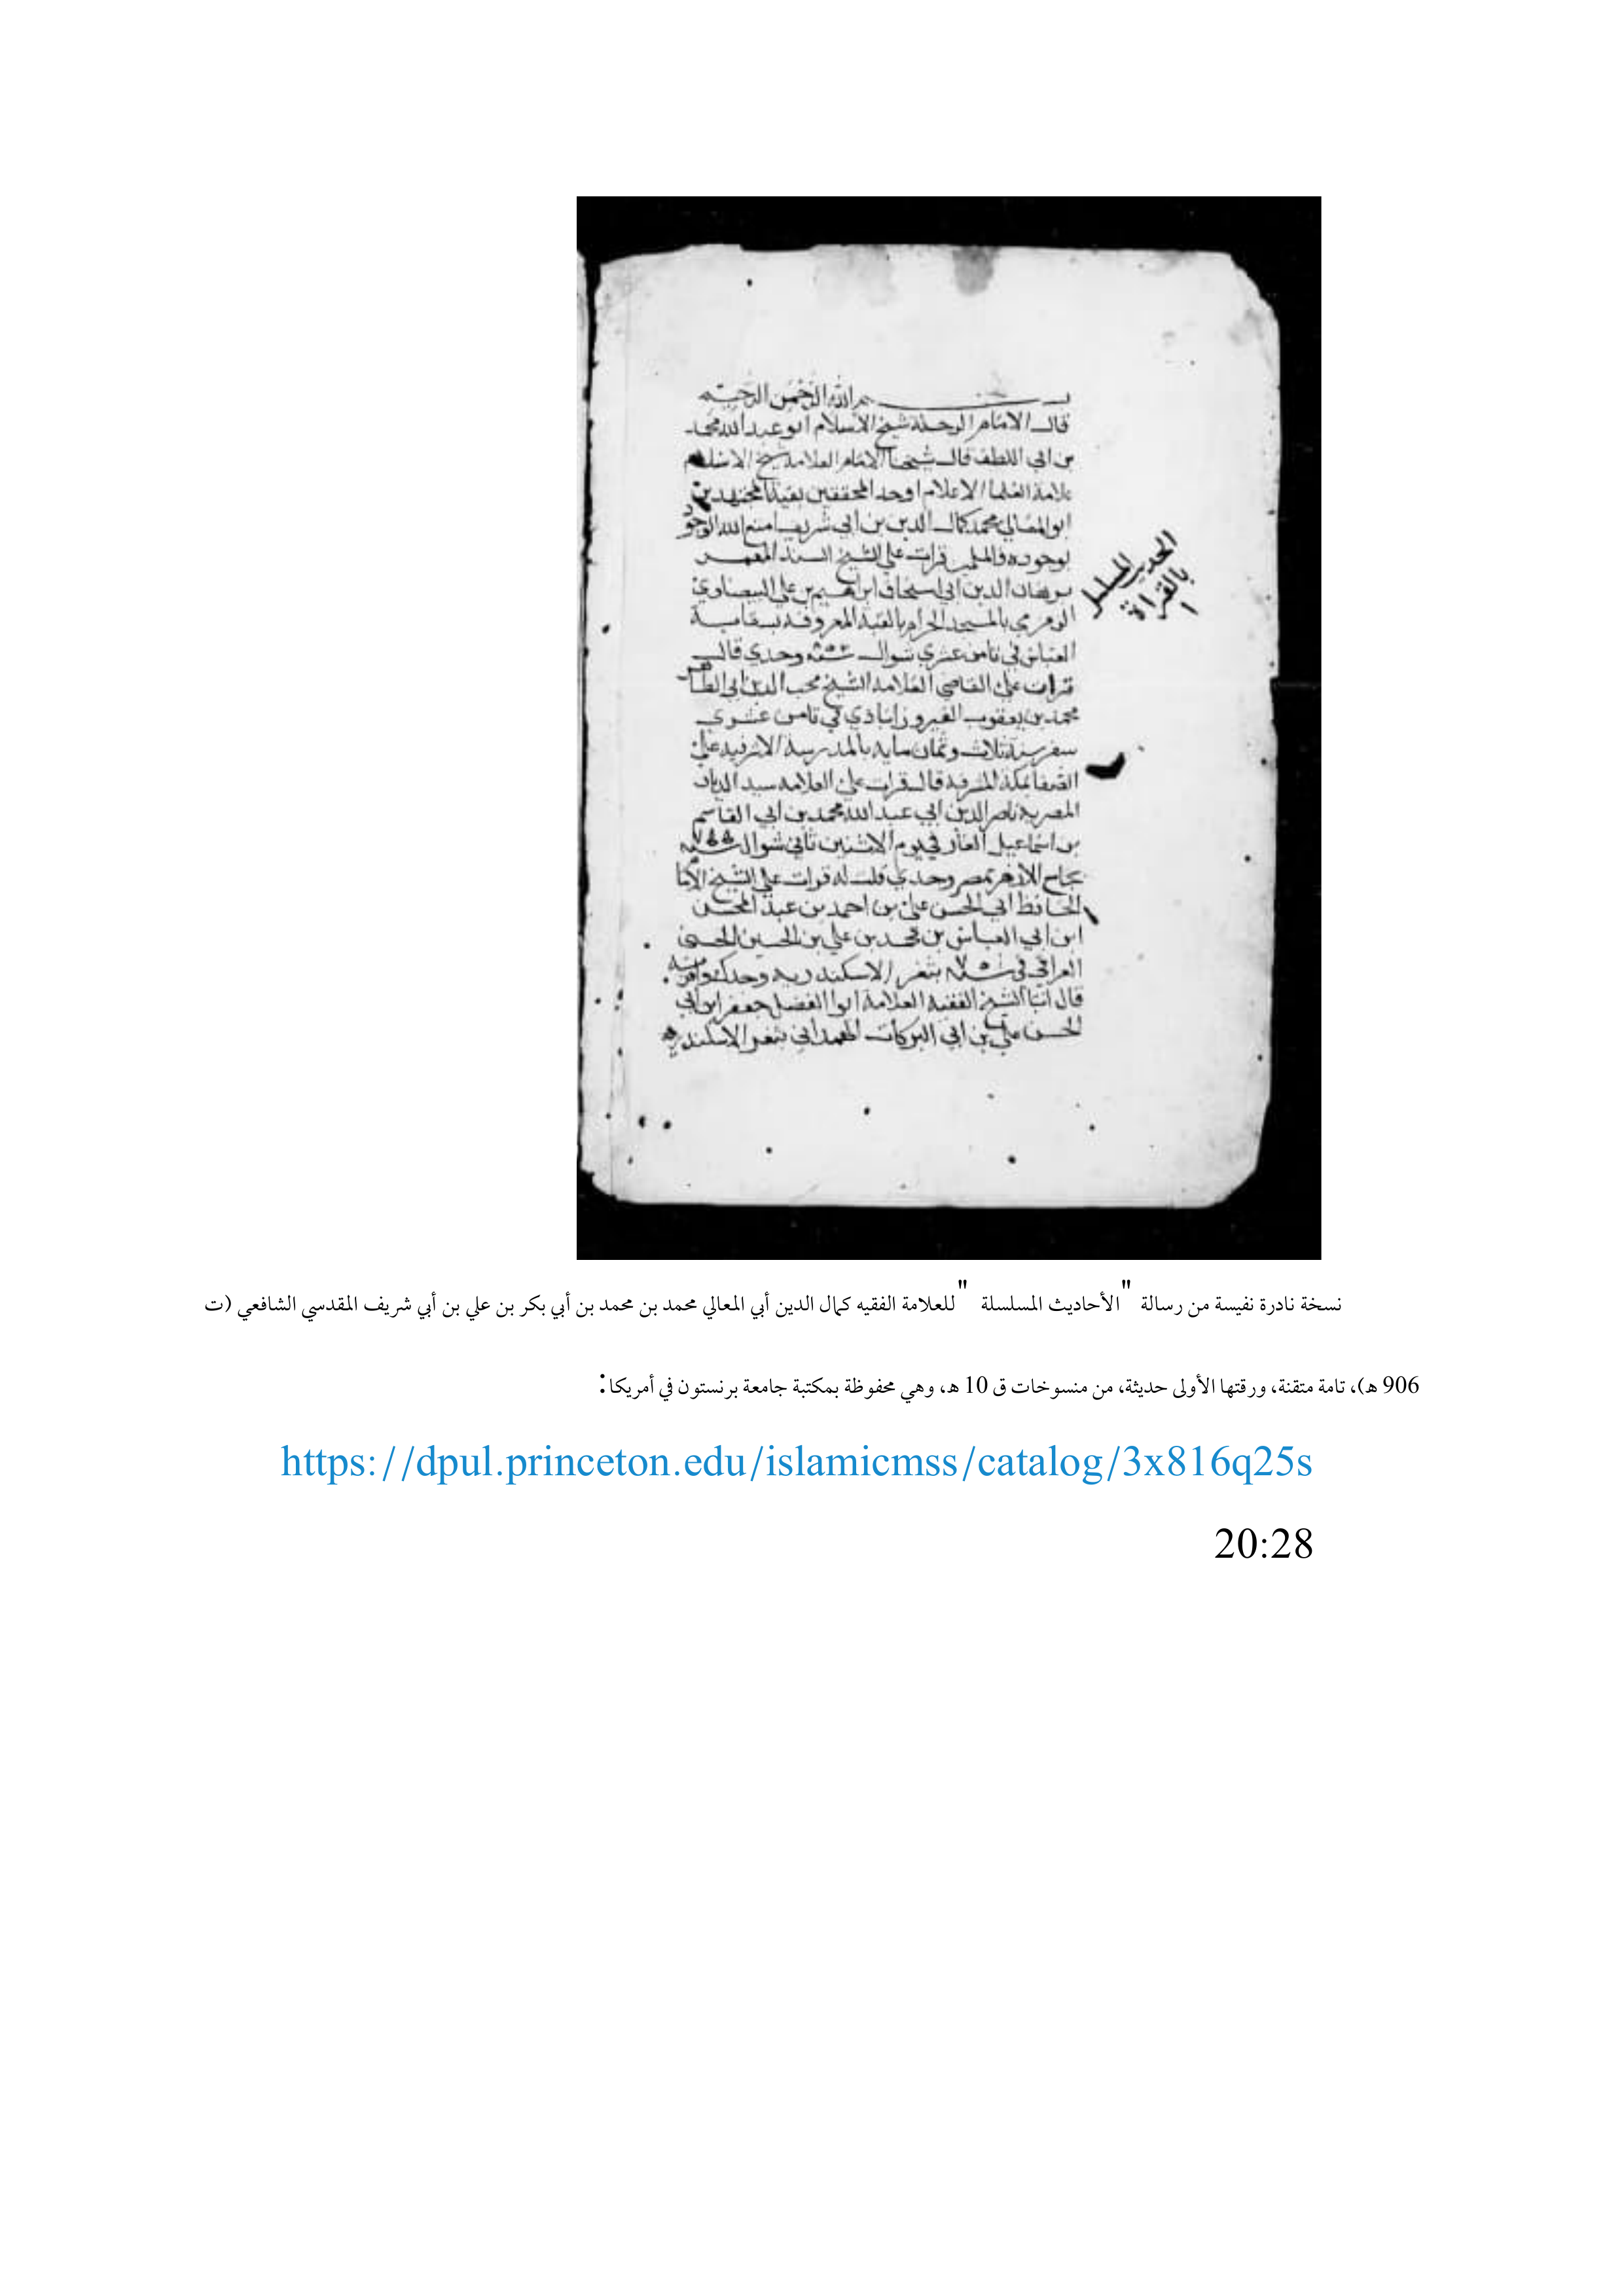 بسم الله الرحمن الرحيم
قال الامام الرحلة شيخ الاسلام ابو عبد الله محمد
بن ابي اللطف قال شيخنا الامام العلامة شيخ الاسلام
علامة العلما الاعلام اوحد المحققين بقية المجتهدين
ابو المعالي محمد كمال الدين بن ابي شريف امتع الله الوجود
بوجوده قرات علي الشيخ المسند المعمر
برهان الدين ابي اسحاق ابراهيم بن علي البيضاوي
الزمزمي بالمسجد الحرام بالقبة المعروفة بسقاية
العباس في ثامن عشري شوال وحدي قال
قرات علي القاضي العلامة الشيخ محب الدين ابي الطاهر
محمد بن يعقوب الفيروزابادي في ثامن عشري
سفر سنة ثلاث وثمان ماية بالمدرسة الاشرفية علي
الصفا بمكة المشرفة قال قرات علي العلامة سيد الديار
المصرية ناصر الدين ابي عبد الله محمد بن ابي القاسم
بن اسماعيل الفارقي يوم الاثنين ثاني شوال
بجامع الازهر بمصر وحدي قلت له قرات علي الشيخ الاما
الحافظ ابي الحسن علي بن احمد بن عبد المحسن
ابن ابي العباس بن محمد بن علي بن الحسين الحسني
العراقي في بثغر الاسكندرية وحدك
قال انبا الشيخ الفقيه العلامة ابو الفضل جعفر ابن ابي
الحسن علي بن ابي البركات الهمداني بثغر الاسكندرية
الحديث المسلسل
بالقراة
١
نسخة نادرة نفيسة من رسالة "الأحاديث المسلسلة " للعلامة الفقيه كمال الدين أبي المعالي محمد بن محمد بن أبي بكر بن علي بن أبي شريف المقدسي الشافعي (ت
906 هـ)، تامة متقنة، ورقتها الأولى حديثة، من منسوخات ق 10 هـ، وهي محفوظة بمكتبة جامعة برنستون في أمريكا:
https://dpul.princeton.edu/islamicmss/catalog/3x816q25s
20:28